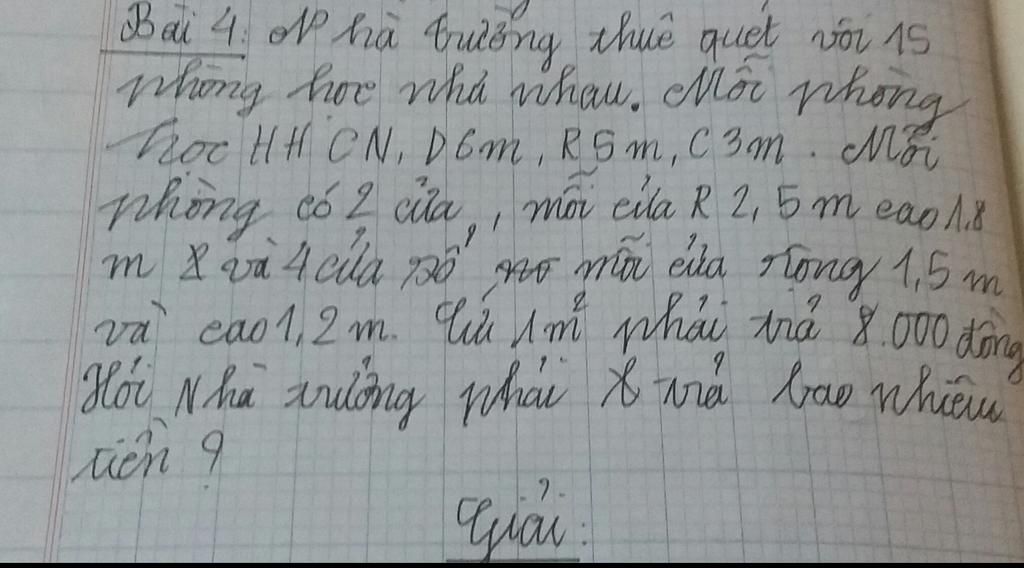 Bài 4: Nhà trường thuê quét vôi 15
phòng học nhá nhau. Mỗi phòng
học HHCN, D6m, R5m, C3m. Mỗi
phòng có 2 cửa, mỗi cửa R 2,5m cao 1,8
m và 4 cửa sổ, mỗi cửa rộng 1,5m
và cao 1,2m. Cứ 1m² phải trả 8.000 đồng
Hỏi Nhà trường phải trả bao nhiêu
tiền?
Giải: